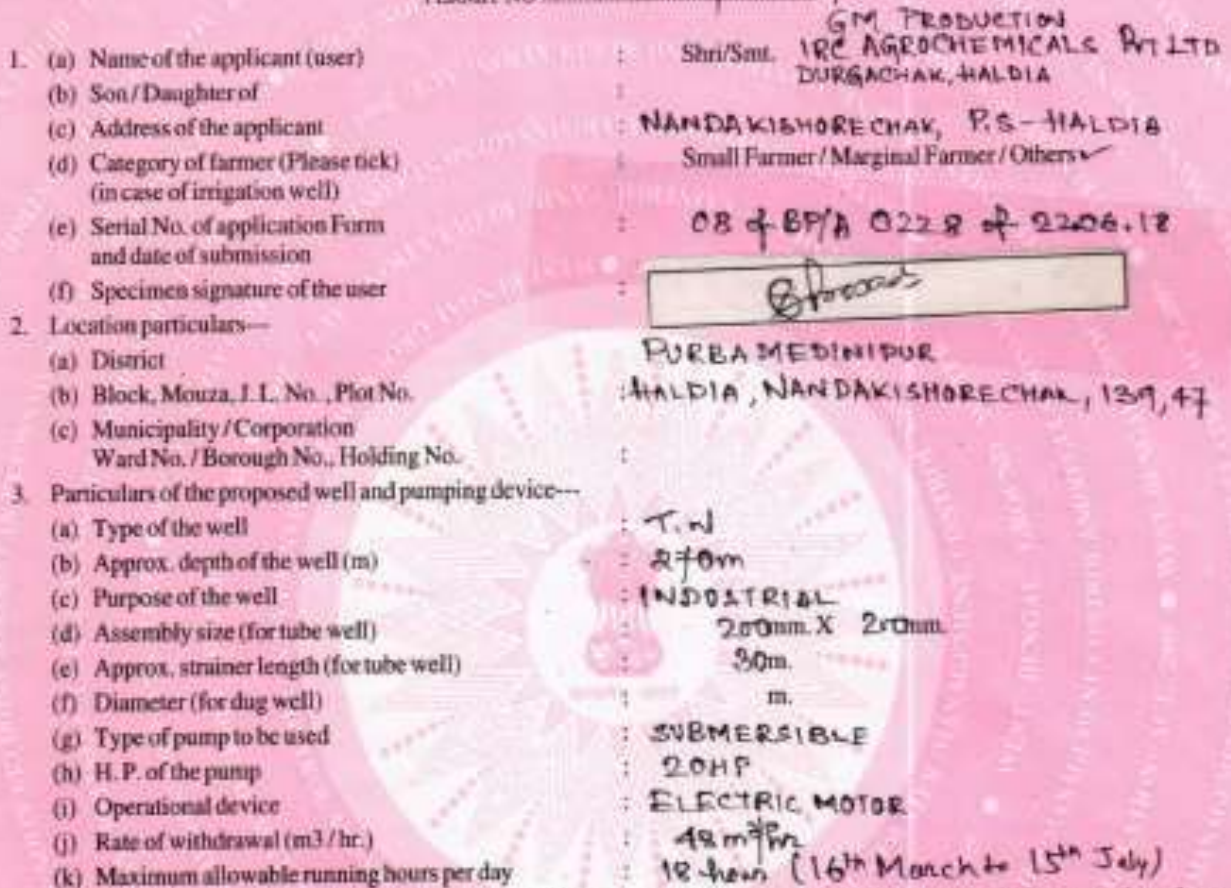 GM PRODUCTION
1. (a) Name of the applicant (user) : Shri/Smt. IRC AGROCHEMICALS PVT LTD
DURGACHAK, HALDIA
(b) Son / Daughter of :
(c) Address of the applicant : NANDAKISHORECHAK, P.S - HALDIA
(d) Category of farmer (Please tick) : Small Farmer / Marginal Farmer / Others ✓
(in case of irrigation well)
(e) Serial No. of application Form : 08 of BP/A 0228 of 22.06.18
and date of submission
(f) Specimen signature of the user :
2. Location particulars—
(a) District PURBA MEDINIPUR
(b) Block, Mouza, J.L. No., Plot No. : HALDIA, NANDAKISHORECHAK, 139, 47
(c) Municipality / Corporation
Ward No. / Borough No., Holding No. :
3. Particulars of the proposed well and pumping device---
(a) Type of the well : T.W
(b) Approx. depth of the well (m) : 270m
(c) Purpose of the well : INDUSTRIAL
(d) Assembly size (for tube well) : 200mm. X 200mm.
(e) Approx. strainer length (for tube well) : 30m.
(f) Diameter (for dug well) : m.
(g) Type of pump to be used : SUBMERSIBLE
(h) H. P. of the pump : 20HP
(i) Operational device : ELECTRIC MOTOR
(j) Rate of withdrawal (m3 / hr.) : 48 m³/hr
(k) Maximum allowable running hours per day : 18 hours (16th March to 15th July)